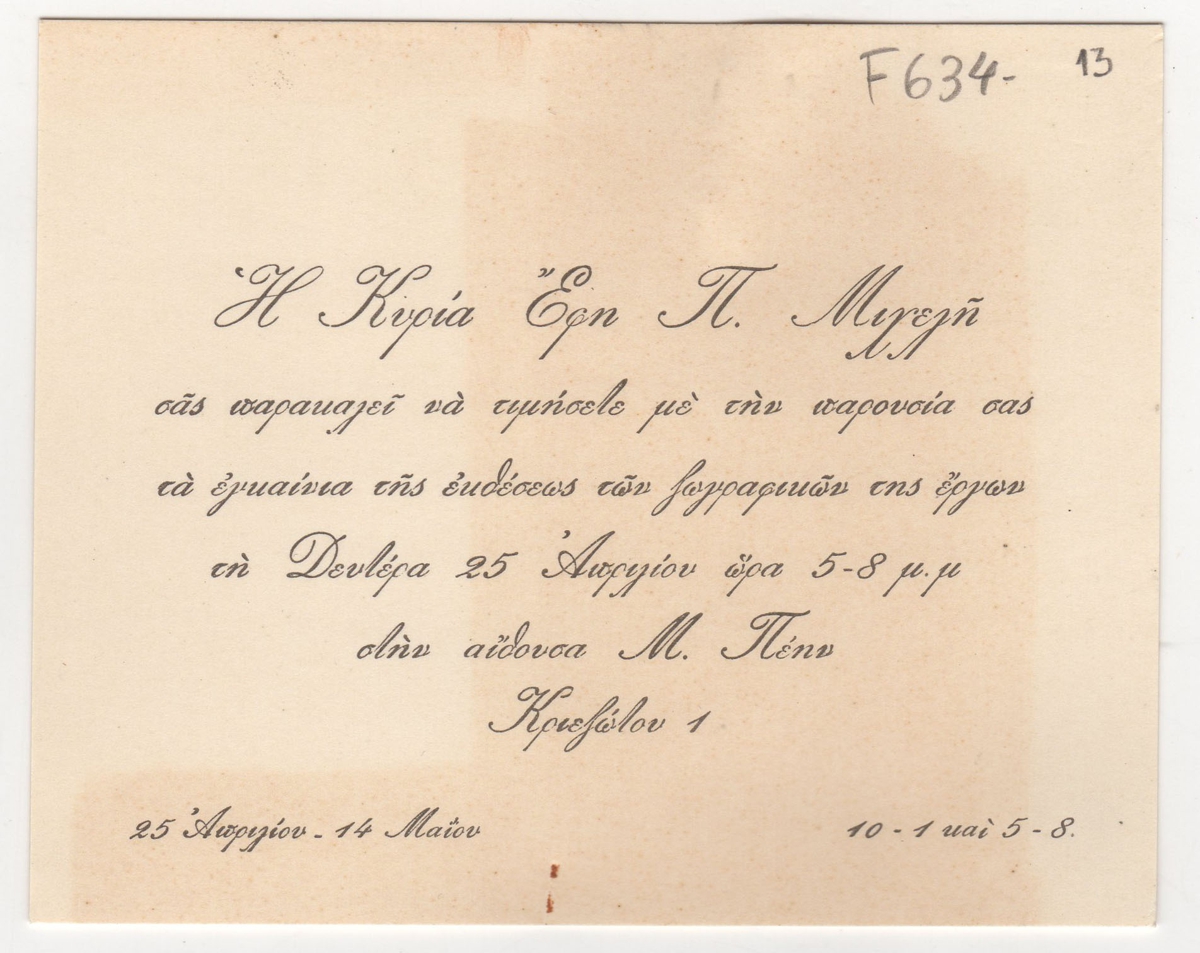 F634- 13
Ἡ Κυρία Ἔφη Π. Μιχελῆ
σᾶς παρακαλεῖ νὰ τιμήσετε μὲ τὴν παρουσία σας
τὰ ἐγκαίνια τῆς ἐκθέσεως τῶν ζωγραφικῶν της ἔργων
τὴ Δευτέρα 25 Ἀπριλίου ὥρα 5-8 μ.μ
στὴν αἴθουσα Μ. Πέην
Κριεζώτου 1
25 Ἀπριλίου - 14 Μαΐου 10 - 1 καὶ 5 - 8.